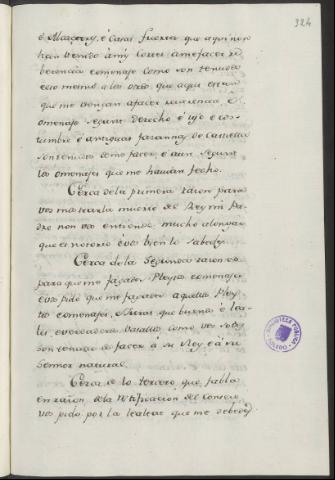 324
é Alcazares, é Casas fuertes que aqui no se
han venido à my Cortes à me facer re
berencia é omenage como son tenudos
é eso mesmo a los otros que aqui estan
que me vengan afacer reverencia é
omenage segunt derecho é uso é cos
tumbre é antiguas fazannas de Castiella
son tenudos como facer, é aun segunt
los omenages que me havian fecho.
Cerca de la primera razon para
vos mostrar la muerte del Rey mi Pa
dre non vos entiendo mucho alongar
que es notorio é vos bien lo sabedes.
Cerca de la Segunda razon es
para que me façades Pleytos é omenages
é vos pido que me façades aquellos Pley
tos é omenages, é Juras que buenos é lea
les, é verdaderos Vasallos como vos sodes
son tenudos de facer à su Rey é à su
Sennor natural.
Cerca de lo tercero que fabla
en razon de la Notificacion del Consejo
vos pido por la lealtat que me debedes
BIBLIOTECA PUBLICA
TOLEDO